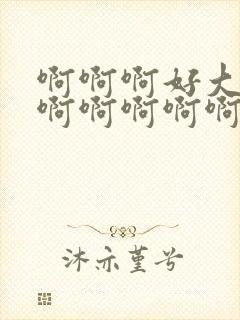 啊啊啊好大
啊啊啊啊啊
沐亦堇兮